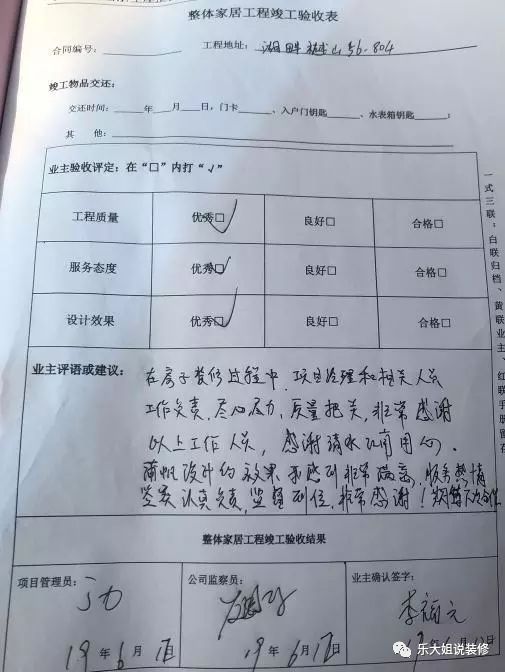 整体家居工程竣工验收表
合同编号： 工程地址：湖畔 山56-804
竣工物品交还：
交还时间： 年 月 日，门卡 、入户门钥匙 、水表箱钥匙 ；
其 他：
业主验收评定：在“□”内打“√”
工程质量 优秀□√ 良好□ 合格□
服务态度 优秀□√ 良好□ 合格□
设计效果 优秀□√ 良好□ 合格□
一式三联：白联归档、黄联业主、红联手册留存
业主评语或建议：
在房子装修过程中，项目经理和相关人员
工作负责，尽心尽力，质量把关，非常感谢
以上工作人员，感谢 水 用心。
设计的效果 感到非常满意，服务热情
认真负责，监督到位，非常感谢！期待下次合作
整体家居工程竣工验收结果
项目管理员： 公司监察员： 业主确认签字：
李福元
19年6月17日 19年6月17日 19年6月17日
乐大姐说装修